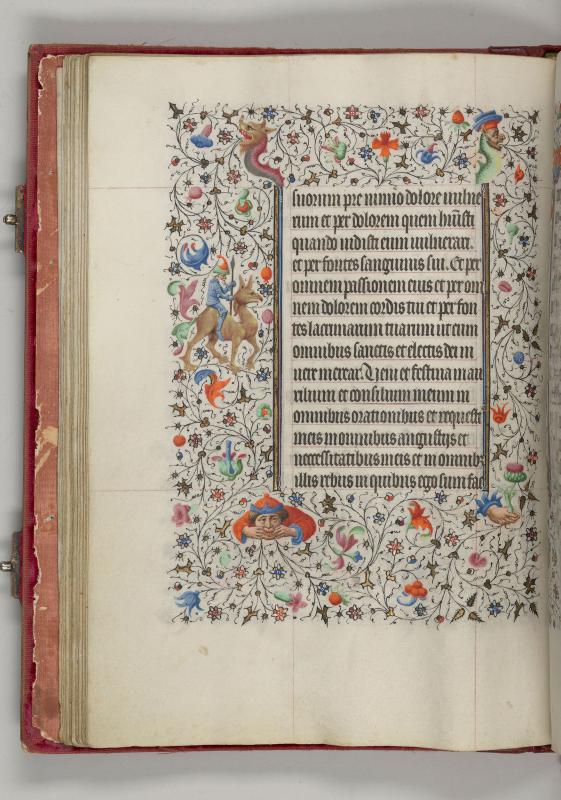 suorum pre nimio dolore vulne
rum et per dolorem quem hũisti
quando vidisti eum vulnerari.
et per fontes sanguinis sui. Et per
omnem passionem eius et per om
nem dolorem cordis tui et per fon
tes lacrimarum tuarum ut cum
omnibus sanctis et electis dei ui
nere merear. Veni et festina in au
xilium et consilium meum in
omnibus orationibus et requestis
meis in omnibus angustijs et
necessitatibus meis et in omnibꝫ
illis rebus in quibus ego sum fac